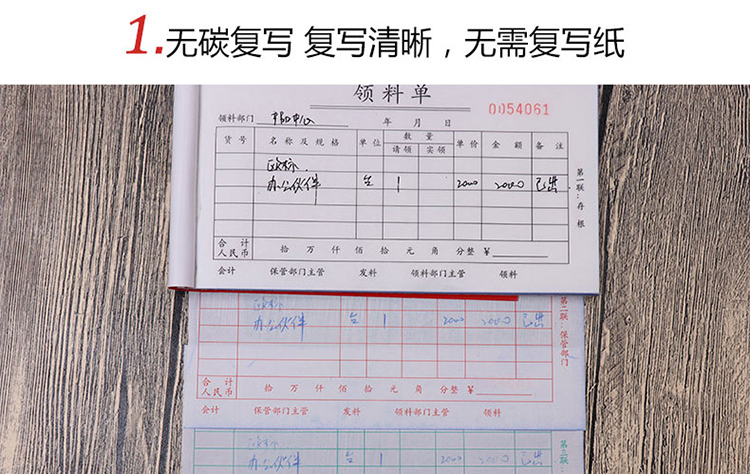 1.无碳复写 复写清晰，无需复写纸
领料单
0054061
领料部门 年 月 日
货号 名称及规格 单位 数量 单价 金额 备注
请领 实领
办公伙件 台 1 2000 2000 已出
第一联：存根
合计 人民币 拾 万 仟 佰 拾 元 角 分整 ¥
会计 保管部门主管 发料 领料部门主管 领料
办公伙件 台 1 2000 2000 已出
第二联：保管部门
合计 人民币 拾 万 仟 佰 拾 元 角 分整 ¥
会计 保管部门主管 发料 领料部门主管 领料
办公伙件 台 1 2000 2000 已出
第三联